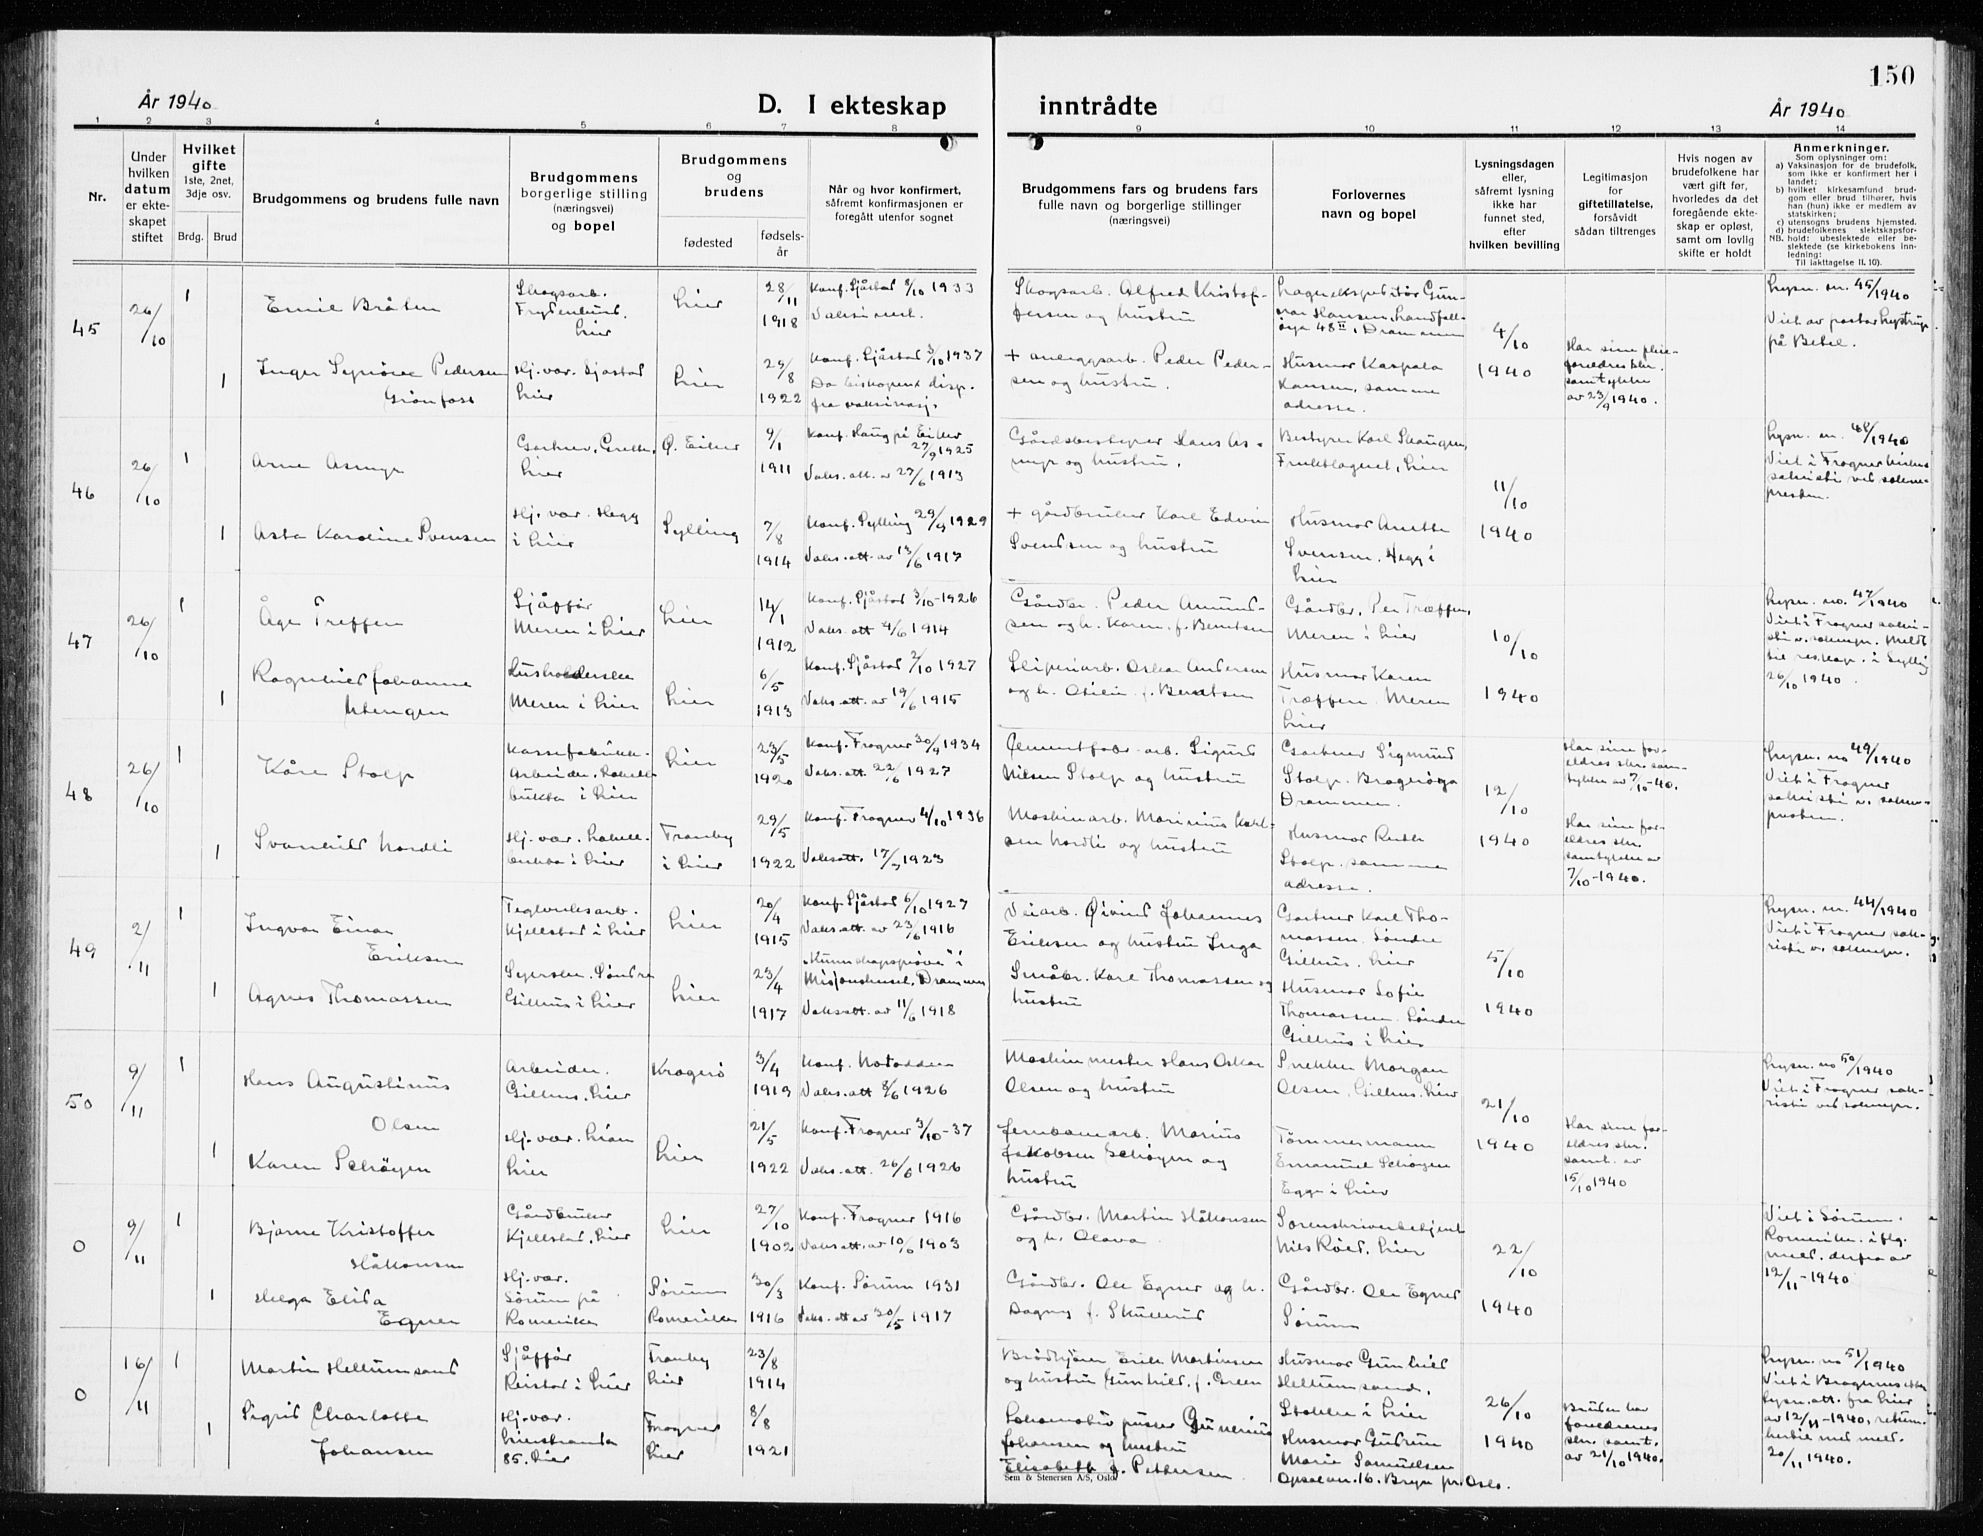 150
År 1940
D. I ekteskap
inntrådte
År 1940
1 2 3 4 5 6 7 8 9 10 11 12 13 14
Nr.
Under
hvilken
datum
er ekte-
skapet
stiftet
Hvilket
gifte
1ste, 2net,
3dje osv.
Brdg. Brud
Brudgommens og brudens fulle navn
Brudgommens
borgerlige stilling
(næringsvei)
og bopel
Brudgommens
og
brudens
fødested
fødsels-
år
Når og hvor konfirmert,
såfremt konfirmasjonen er
foregått utenfor sognet
Brudgommens fars og brudens fars
fulle navn og borgerlige stillinger
(næringsvei)
Forlovernes
navn og bopel
Lysningsdagen
eller,
såfremt lysning
ikke har
funnet sted,
efter
hvilken bevilling
Legitimasjon
for
giftetillatelse,
forsåvidt
sådan tiltrenges
Hvis nogen av
brudefolkene har
vært gift før,
hvorledes da det
foregående ekte-
skap er opløst,
samt om lovlig
skifte er holdt
Anmerkninger.
Som oplysninger om:
a) Vaksinasjon for de brudefolk,
som ikke er konfirmert her i
landet;
b) hvilket kirkesamfund brud-
gom eller brud tilhører, hvis
han (hun) ikke er medlem av
statskirken;
c) utensogns brudens hjemsted.
d) brudefolkenes slektskapsfor-
NB. hold: ubeslektede eller be-
slektede (se kirkebokens inn-
ledning:
Til iakttagelse II. 10).
45
26/10
1
Emil Bråten
Skogsarb.
Frydenlund.
Lier
Lier
28/11
1918
Konf. Sjåstad 8/10 1933
Skogsarb. Alfred Kristof-
fersen og hustru
Lagerekspeditør Gun-
nar Hansen, Landfall-
øya 48 II, Drammen
4/10
1940
Lysn. nr. 45/1940
Viet av pastor Lystrup
på Betel.
1
Inger Synøve Pedersen
Grønfoss
Hj. vær. Sjåstad
Lier
Lier
29/8
1922
Konf. Sjåstad 3/10 1937
Da biskopens disp.
fra vaksinasj.
+ anleggsarb. Peder Peder-
sen og hustru.
Husmor Kaspara
Hansen, samme
adresse.
Har sine pleie-
foreldres skr.
samtykke
av 23/9 1940.
46
26/10
1
Arne Asmyr
Gartner, Grette,
Lier
Ø. Eiker
9/1
1911
Konf. Haug på Eiker
27/9 1925
Vaks. att. av 27/6 1913
Gårdsbestyrer Hans As-
myr og hustru.
Bestyrer Karl Skaugen,
Fruktlageret, Lier
11/10
1940
Lysn. nr. 48/1940
Viet i Frogner kirkes
sakristi ved sokne-
presten.
1
Asta Karoline Svensen
Hj. vær. Hegg
i Lier
Sylling
7/8
1914
Konf. Sylling 29/9 1929
Vaks. att. av 13/6 1917
+ gårdbruker Karl Edvin
Svendsen og hustru
Husmor Anette
Svensen, Hegg i
Lier
47
26/10
1
Åge Treffen
Sjåffør
Meren i Lier
Lier
14/1
1912
Konf. Sjåstad 3/10-1926
Vaks. att 4/6 1914
Gårdbr. Peder Amund-
sen og h. Karen f. Berntsen
Gårdbr. Per Træffen,
Meren i Lier
10/10
1940
Lysn. no. 47/1940
Viet i Frogner sakri-
sti v. soknepr. Meldt
til reskap. i Sylling
26/10 1940.
1
Ragnhild Johanne
Utengen
Husholderske
Meren i Lier
Lier
6/5
1913
Konf. Sjåstad 2/10 1927
Vaks. att. av 19/6 1915
Sliperiarb. Oskar Andersen
og h. f. Berntsen
Husmor Karen
Træffen Meren
Lier
48
26/10
1
Kåre Stolp
Kassefabrikk-
Arbeider,
bukta i Lier
Lier
23/5
1920
Konf. Frogner 30/9 1934
Vaks. att. 22/6 1927
Cementfabr. arb. Sigurd
Nilsen Stolp og hustru
Gartner Sigmund
Stolp. Bragerøya
Drammen.
12/10
1940
Har sine for-
eldres skr. sam-
tykke av 7/10-40.
Lysn. no 49/1940
Viet i Frogner
sakristi v. sokne-
presten.
1
Svanhild Nordli
Hj. vær.
bukta i Lier
Tranby
i Lier
29/5
1922
Konf. Frogner 4/10 1936
Vaks att. 17/9 1923
Maskinarb. Marinius Karl-
sen Nordli og hustru
Husmor Ruth
Stolp. samme
adresse.
Har sine for-
eldres skr.
samtykke av
7/10-1940.
49
2/11
1
Ingvar Einar
Eriksen
Teglverksarb.
Kjellstad i Lier
Lier
20/4
1915
Konf. Sjåstad 6/10 1927
Vaks. att. av 23/6 1916
Veiarb. Øivind Johannes
Eriksen og hustru Inga
Gartner Karl Tho-
massen. Søndre
Gilhus. Lier
5/10
1940
Lysn. nr. 44/1940
Viet i Frogner sak-
risti v. soknepr.
1
Agnes Thomassen
Syerske. Søndre
Gilhus i Lier
Lier
23/4
1917
"Kunnskapsprøve" i
Misjonshuset, Drammen
Vaks att. av 11/6 1918
Småbr. Karl Thomassen og
hustru
Husmor Sofie
Thomassen. Søndre
Gilhus i Lier
50
9/11
1
Hans Augustinus
Olsen
Arbeider.
Gilhus, Lier
Kragerø
3/4
1919
Konf. Notodden
Vaks. att 8/6 1926
Maskinmester Hans Oskar
Olsen og hustru
Snekker Morgan
Olsen, Gilhus, Lier
21/10
1940
Lysn. no 50/1940
Viet i Frogner sak-
risti ved soknepr.
1
Karen Schøyen
Hj. vær. Lian
Lier
Lier
21/5
1922
Konf. Frogner 3/10-37
Vaks. att. 26/6 1926
Jernbanearb. Marius
Jakobsen Schøyen og
hustru
Tømmermann
Emanuel Schøyen
Egge i Lier
Har sine for-
eldres skr.
samt. av
15/10 1940
0
9/11
1
Bjarne Kristoffer
Håkonsen
Gårdbruker
Kjellstad, Lier
Lier
27/10
1902
Konf. Frogner 1916
Vaks att. av 10/6 1903
Gårdbr. Martin Håkonsen
og h. Olava
Sorenskriverbetjent
Nils Røed, Lier
22/10
1940
Viet i Sørum.
Romerike. iflg.
meld. derfra av
12/11-1940
1
Helga Elida
Egner
Hj. vær.
Sørum på
Romerike
Sørum
Romerike
30/3
1916
Konf. Sørum 1931
Vaks. att av 30/5 1917
Gårdbr. Ole Egner og h.
Dagny f. Skullerud
Gårdbr. Ole Egner
Sørum
0
16/11
1
Martin Hellumsand
Sjåffør
Reistad i Lier
Tranby
Lier
23/8
1914
Brødkjører Erik Martinsen
og hustru Gunhild, f. Green
Husmor Gunhild
Hellumsand,
Stokke i Lier
26/10
1940
Lysn. no 51/1940
Viet i Bragernes etter
lysn. att. fra Lier
av 12/11-1940, return.
hertil med meld.
20/11 1940.
1
Sigrid Charlotte
Johansen
Hj. vær.
Lierstranda
85. Lier
Frogner
Lier
8/8
1921
Lokomotiv pusser Gunerius
Johansen og hustru
Elisabeth f. Pettersen
Husmor Gudrun
Marie Samuelsen
Opsalvn. 16. Bryn pr. Oslo.
Bruden har
foreldrenes
skr. samt.
av 21/10 1940.
Sem & Stenersen A/S, Oslo